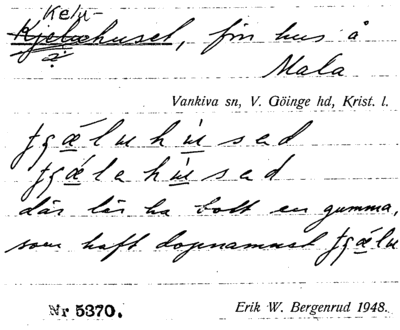 Kelu-
Kjelahuset, för hus å
Mala
Vankiva sn, V. Göinge hd, Krist. l.
tjæluhused
tjælahused
där lär ha bott en gumma,
som haft dopnamnet tjælu
Nr 5370.
Erik W. Bergenrud 1948.